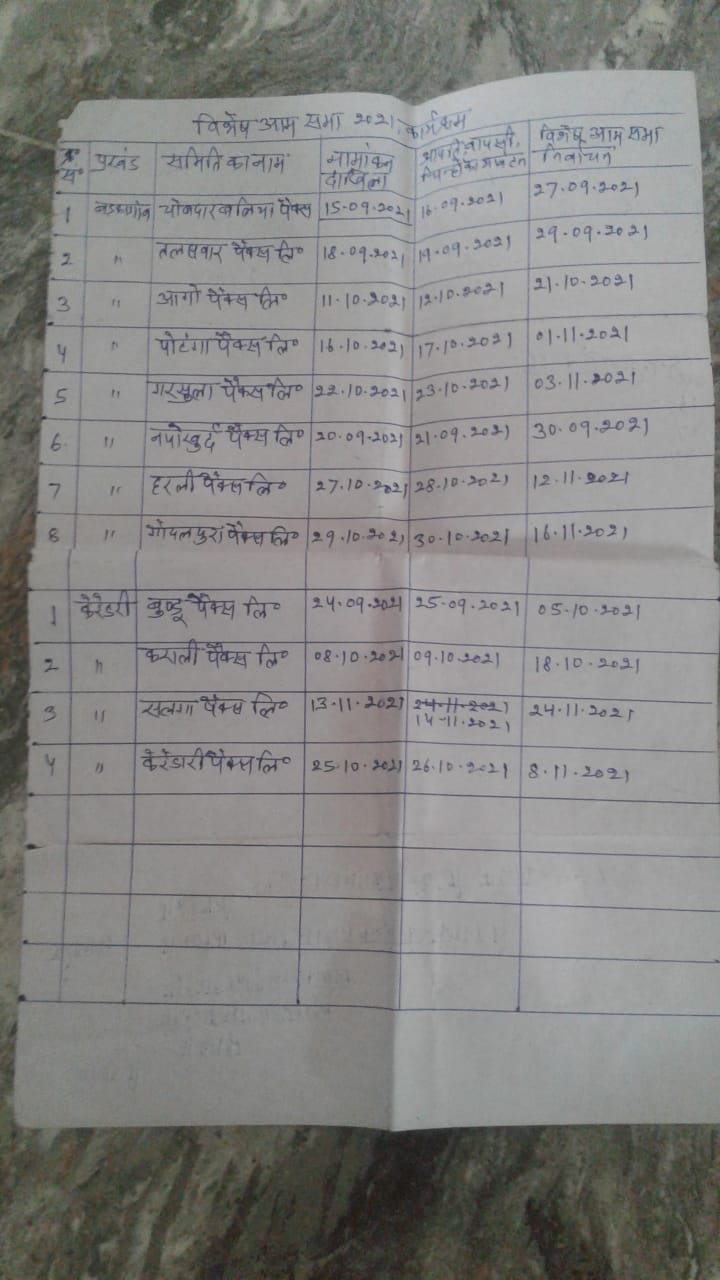 विशेष आम सभा 2021, कार्यक्रम
क्र० सं० प्रखंड समिति का नाम नामांकन दाखिला आपत्ति, वापसी, चिन्हों का आवंटन विशेष आम सभा निर्वाचन
1 बड़कागाँव चोबदार बलिया पैक्स 15-09-2021 16-09-2021 27-09-2021
2 " तलसवार पैक्स लि० 18-09-2021 19-09-2021 29-09-2021
3 " आंगो पैक्स लि० 11-10-2021 12-10-2021 21-10-2021
4 " पोटंगा पैक्स लि० 16-10-2021 17-10-2021 01-11-2021
5 " गरसुला पैक्स लि० 22-10-2021 23-10-2021 03-11-2021
6 " नापोखुर्द पैक्स लि० 20-09-2021 21-09-2021 30-09-2021
7 " हरली पैक्स लि० 27-10-2021 28-10-2021 12-11-2021
8 " गोंदलपुरा पैक्स लि० 29-10-2021 30-10-2021 16-11-2021
1 केरेडारी बुण्डू पैक्स लि० 24-09-2021 25-09-2021 05-10-2021
2 " कराली पैक्स लि० 08-10-2021 09-10-2021 18-10-2021
3 " सलगा पैक्स लि० 13-11-2021 24-11-2021 14-11-2021 24-11-2021
4 " केरेडारी पैक्स लि० 25-10-2021 26-10-2021 8-11-2021